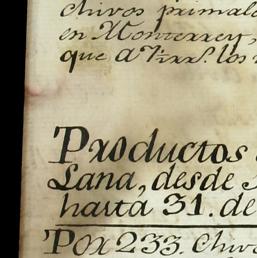 chivos primal
en Monterrey,
que a Virr.ˢ los
Productos
Lana, desde
hasta 31. de
Por 233. Chiv